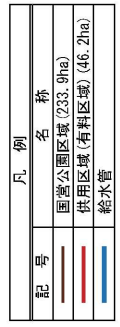 凡 例
記 号 名 称
国営公園区域(233.9ha)
供用区域(有料区域)(46.2ha)
給水管